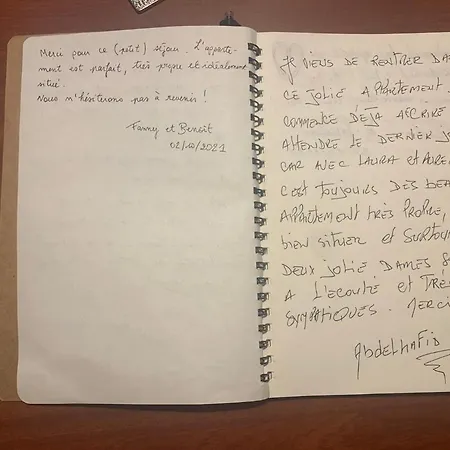 Merci pour ce (petit) séjour. L'apparte-
ment est parfait, très propre et idéalement
situé.
Nous n'hésiterons pas à revenir !
Fanny et Benoît
02/10/2021
Je viens de rentrer da
ce jolie appartement.
commence déjà aécrire
attendre le dernier jo
car avec Laura et Aure
c'est toujours des bea
appartement très propre,
bien situer et surtout
deux jolie dames
a l'écoute et trè
sympatiques. Merci
Abdelhafid